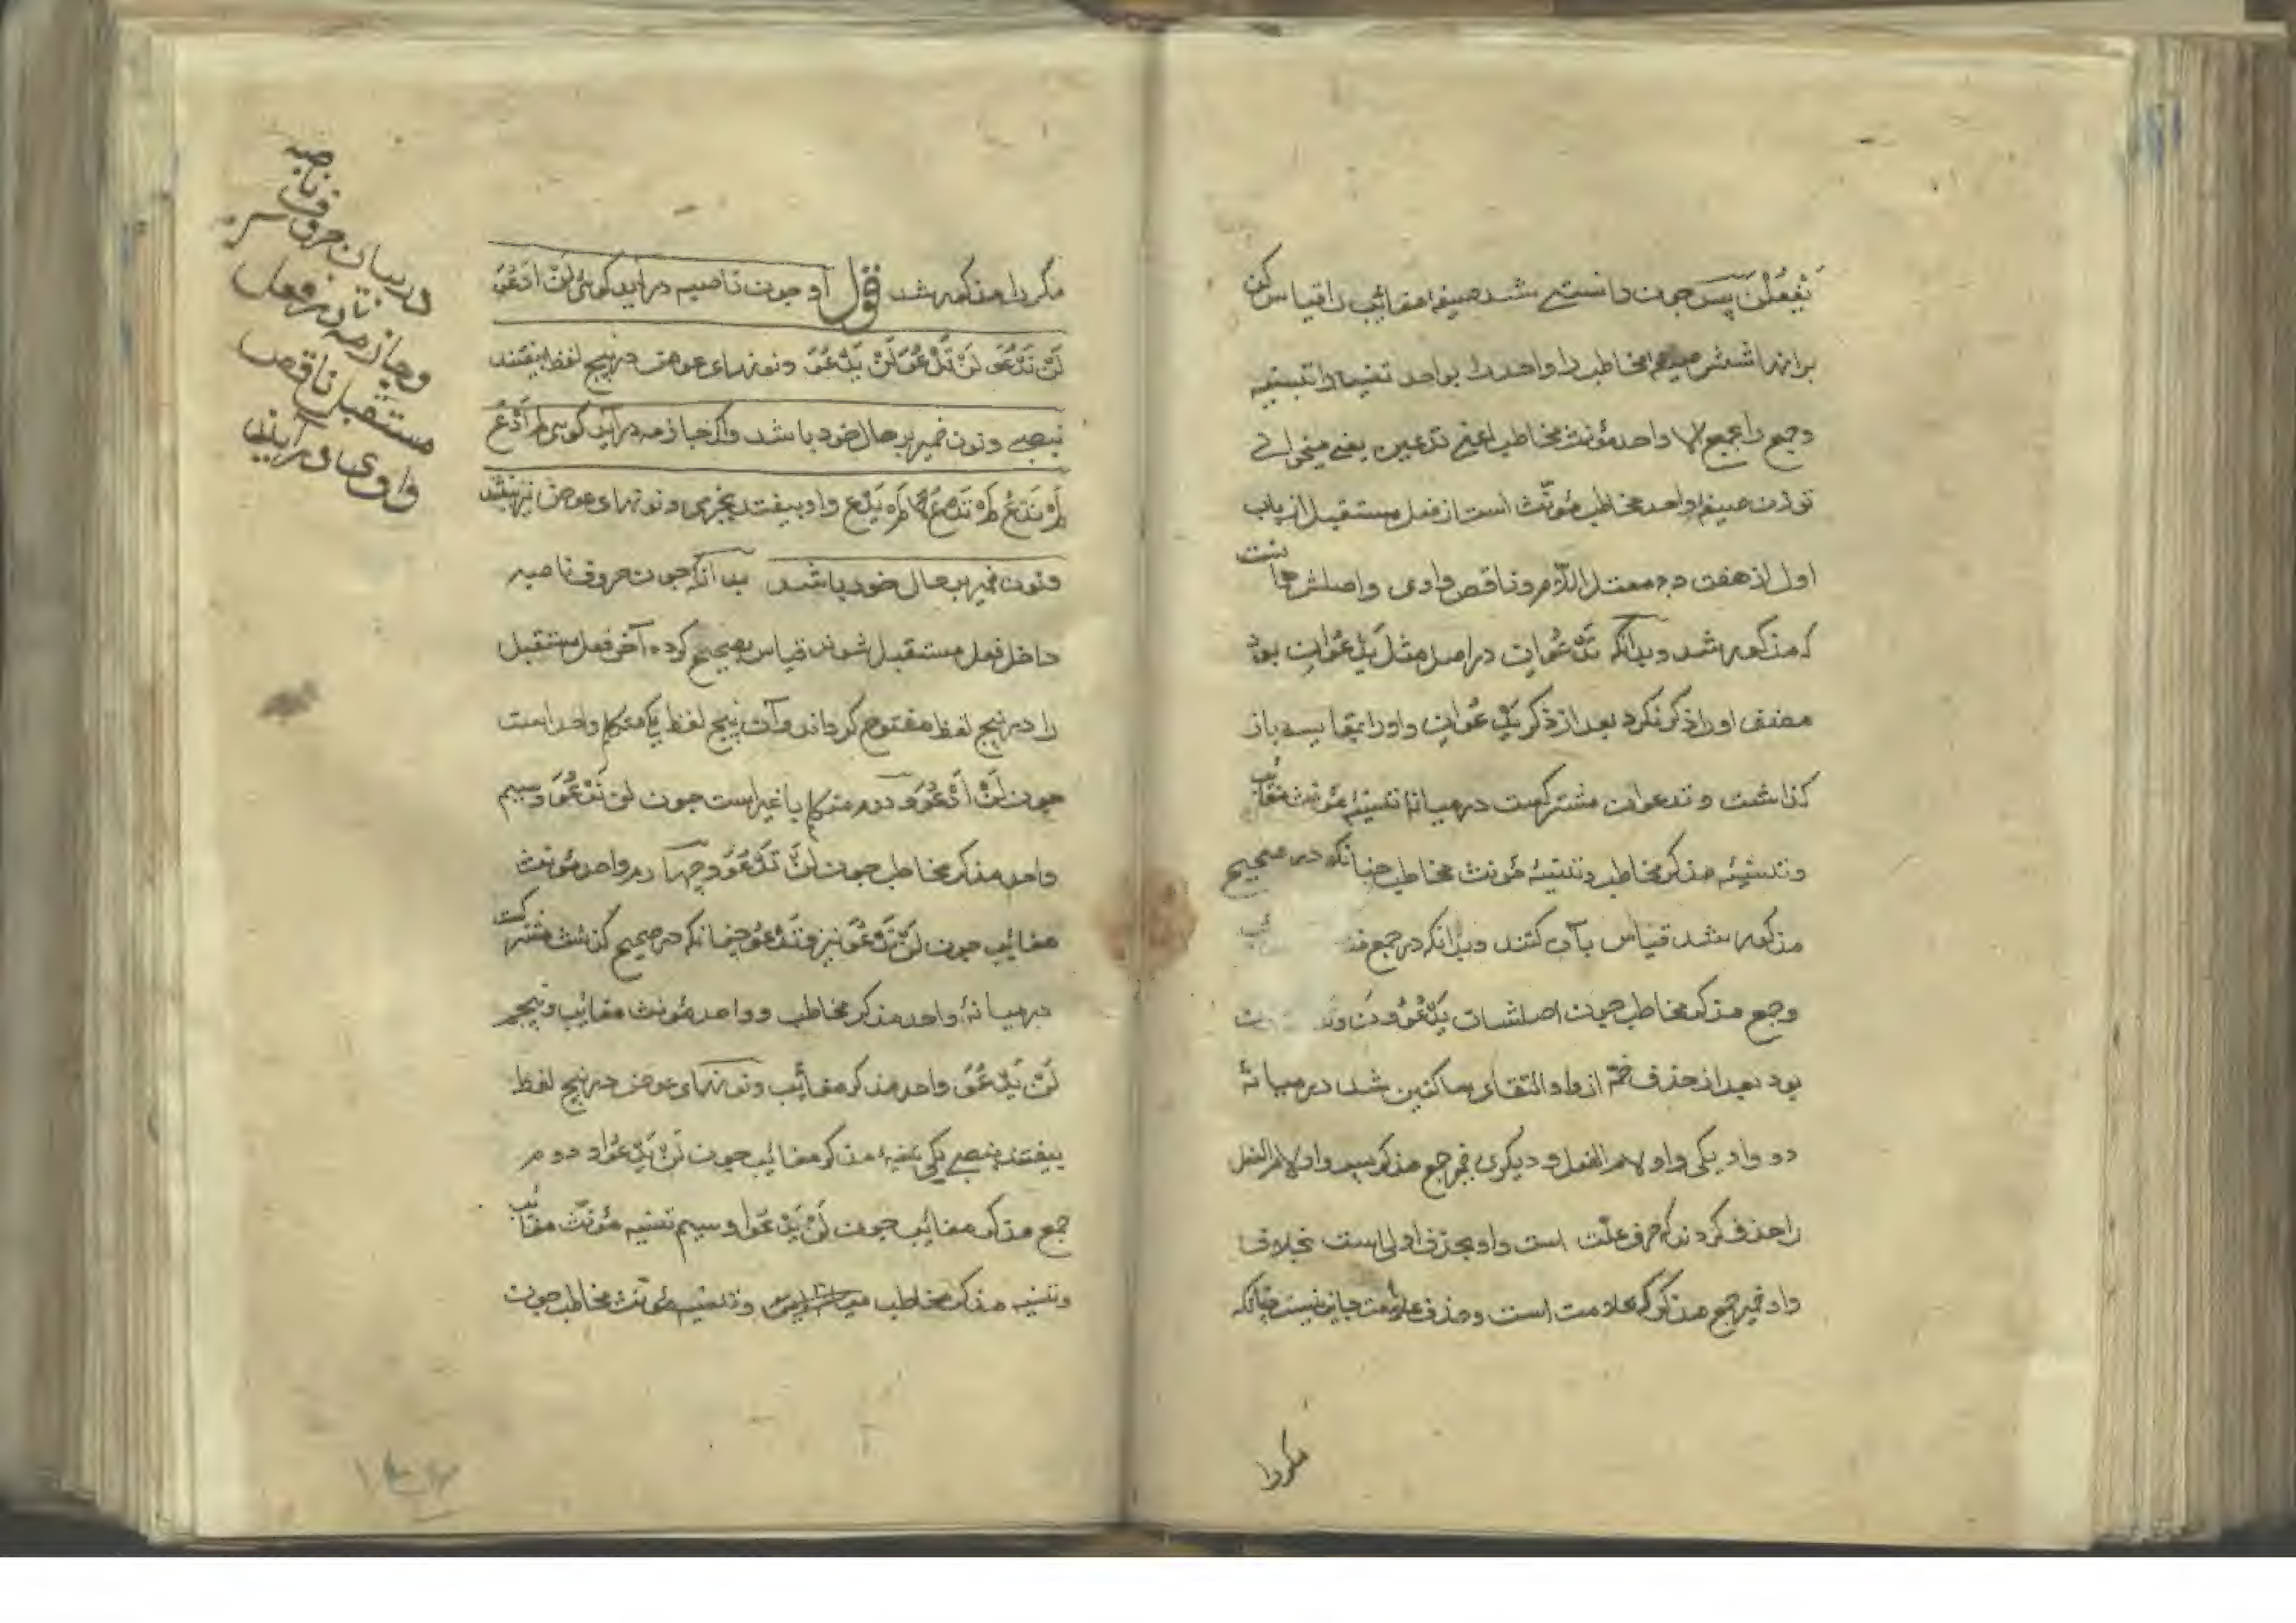 تَفْعُلْنَ پس چون دانستے شد صیغهاء مغائب را قیاس کن
برانها شش صیغهاء مخاطب را واحد را بواحد تثنیه را بتثنیه
وجمع را بجمع الا واحد مؤنث مخاطب اعنے تدعین یعنے میخوانے
تو زن صیغهاء واحد مخاطب مؤنّث است از فعل مستقبل از باب
اول از هفت دوم معتل اللام وناقص واوی واصلش هانست
که مذکور شد وبدانکه تَدْعُوَانِ در اصل مثل یَدْعُوَانِ بود
مصنف اورا ذکر نکرد بعد از ذکر یَدْعُوَانِ واورا بمقایسه باز
گذاشت وتدعوان مشترکست در میانهٔ تثنیهٔ مؤنث مغائب
وتثنیهٔ مذکر مخاطب وتثنیهٔ مؤنث مخاطب چنانکه در صحیح
مذکور شد قیاس بآن کنند وبدانکه در جمع مذ ئب
وجمع مذکر مخاطب چون اصلشان یَدْعُوُونَ
بود بعد از حذف ضمّه از واو التقای ساکنین شد در میانهٔ
دو واو یکی واو لام الفعل ودیگری ضمیر جمع مذکر پس واو لام الفعل
را حذف کردند که حرف علّت است واو بحذف اولی است بخلاف
واو ضمیر جمع مذکر که علامت است وحذف علامت جایز نیست چنانکه
مکررا
مکررا مذکور شد قول او چون ناصبه در آید گوئی لَنْ اَدْعُوَ
لَنْ نَدْعُوَ لَنْ تَدْعُوَ لَنْ یَدْعُوَ ونونهای عوض در پنج لفظ بیفتند
بنصبے ونون ضمیر بر حال خود باشد واگر جازمه در آید گویی لم اَدْعُ
لَمْ نَدْعُ لَمْ تَدْعُ لَمْ یَدْعُ واو بیفتد بجزمی ونونهای عوض نیز بیفتند
ونون ضمیر بر حال خود باشد بدانکه چون حروف ناصبه
داخل فعل مستقبل شوند قیاس بصحیح کرده آخر فعل مستقبل
را در پنج لفظ مفتوح گردانند وآن پنج لفظ یکے متکلم واحد است
چون لَنْ اَدْعُوَ ودوم متکلم با غیر است چون لن نَدْعُوَ وسیم
واحد مذکر مخاطب چون لَنْ تَدْعُوَ وچهارم واحد مؤنث
مغائب چون لَنْ تَدْعُوَ نیز وتَدْعُوَ چنانکه در صحیح گذشت مشترکست
در میانهٔ واحد مذکر مخاطب وواحد مؤنث مغائب وپنجم
لَنْ یَدْعُوَ واحد مذکر مغائب ونونهای عوض در پنج لفظ
بیفتند بنصبے یکی تثنیهٔ مذکر مغائب چون لَنْ یَدْعُوَا ودوم
جمع مذکر مغائب چون لَنْ یَدْعُوا وسیم تثنیه مؤنّث مغائب
وتثنیه مذکر مخاطب وتثنیه مؤنّث مخاطب چون
در بیان حروف ناصبه
وجازمه تا در فعل
مستقبل ناقص
واوی در آیند